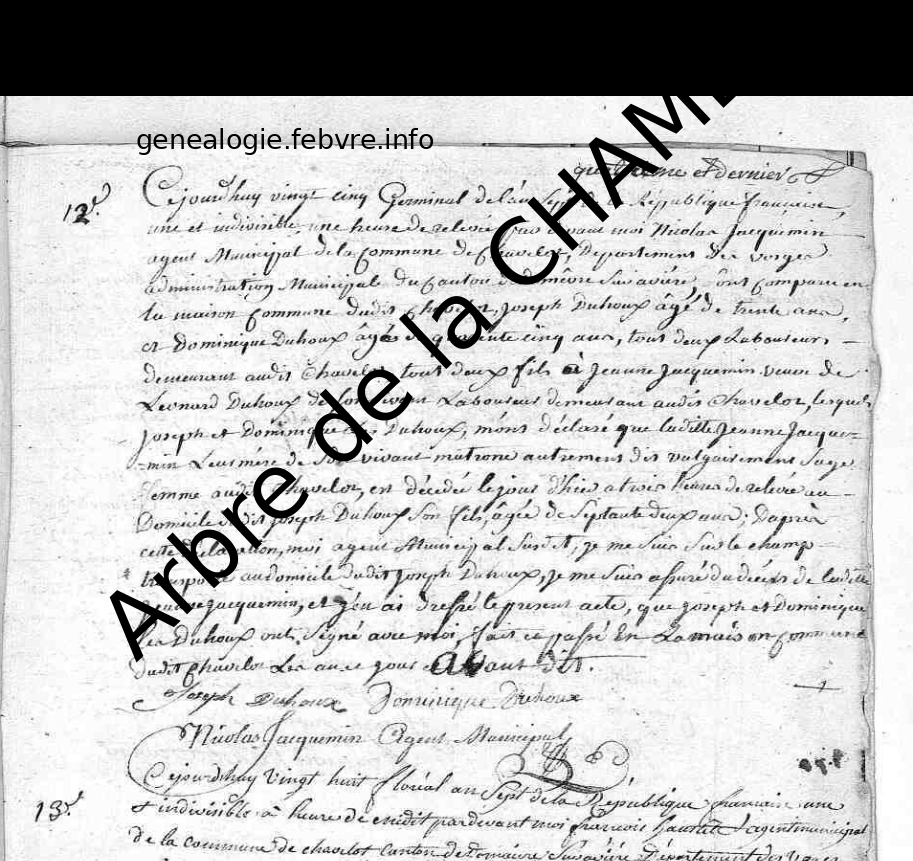 genealogie.febvre.info
Arbre de la CHAM
et dernier
12.e
Cejourd'huy vingt cinq Germinal de l'an Sept de la République francaise
une et indivisible, une heure de relevée pardevant moi Nicolas Jacquemin
agent Municipal de la Commune de Chavelot, Departement des vosges
administration Municipale du Canton de domèvre Sur aviere, ont Comparu en
la maison Commune dudit Chavelot, Joseph Duhoux âgé de trente ans,
et Dominique Duhoux âgé de cinq ans, tous deux Laboureurs
demeurant audit Chavelot, tout deux fils à Jeanne Jacquemin veuve de
Leonard Duhoux de Son vivant Laboureur demeurant audit Chavelot, lesquels
Joseph et Dominique les Duhoux, m'ont déclaré que ladite Jeanne Jacque=
=min Leur mére de Son vivant matrone autrement dit vulgairement Sage
femme audit Chavelot, est décedée le jour d'hier a trois heures de relevée au
Domicile dudit Joseph Duhoux Son fils, âgée de Septante deux ans; Daprès
cette Declaration, moi agent Municipal Susdit, je me Suis Sur le champ
transporté au domicile dudit Joseph Duhoux, je me Suis assuré du décès de ladite
Jeanne Jacquemin, et j'en ai dressé le present acte, que Joseph et Dominique
les Duhoux ont Signé avec moi, fait et passé En La maison commune
dudit Chavelot Les an et jour avant Dit.
Joseph Duhoux Dominique Duhoux
Nicolas Jacquemin Agent Municipal
13.e
Cejourdhuy Vingt huit floréal an Sept de la République francaise une
et indivisible à heure de midit pardevant moi francois agent municipal
de la commune de chavelot Canton de Domaivre Sur aviere Département des Vosges